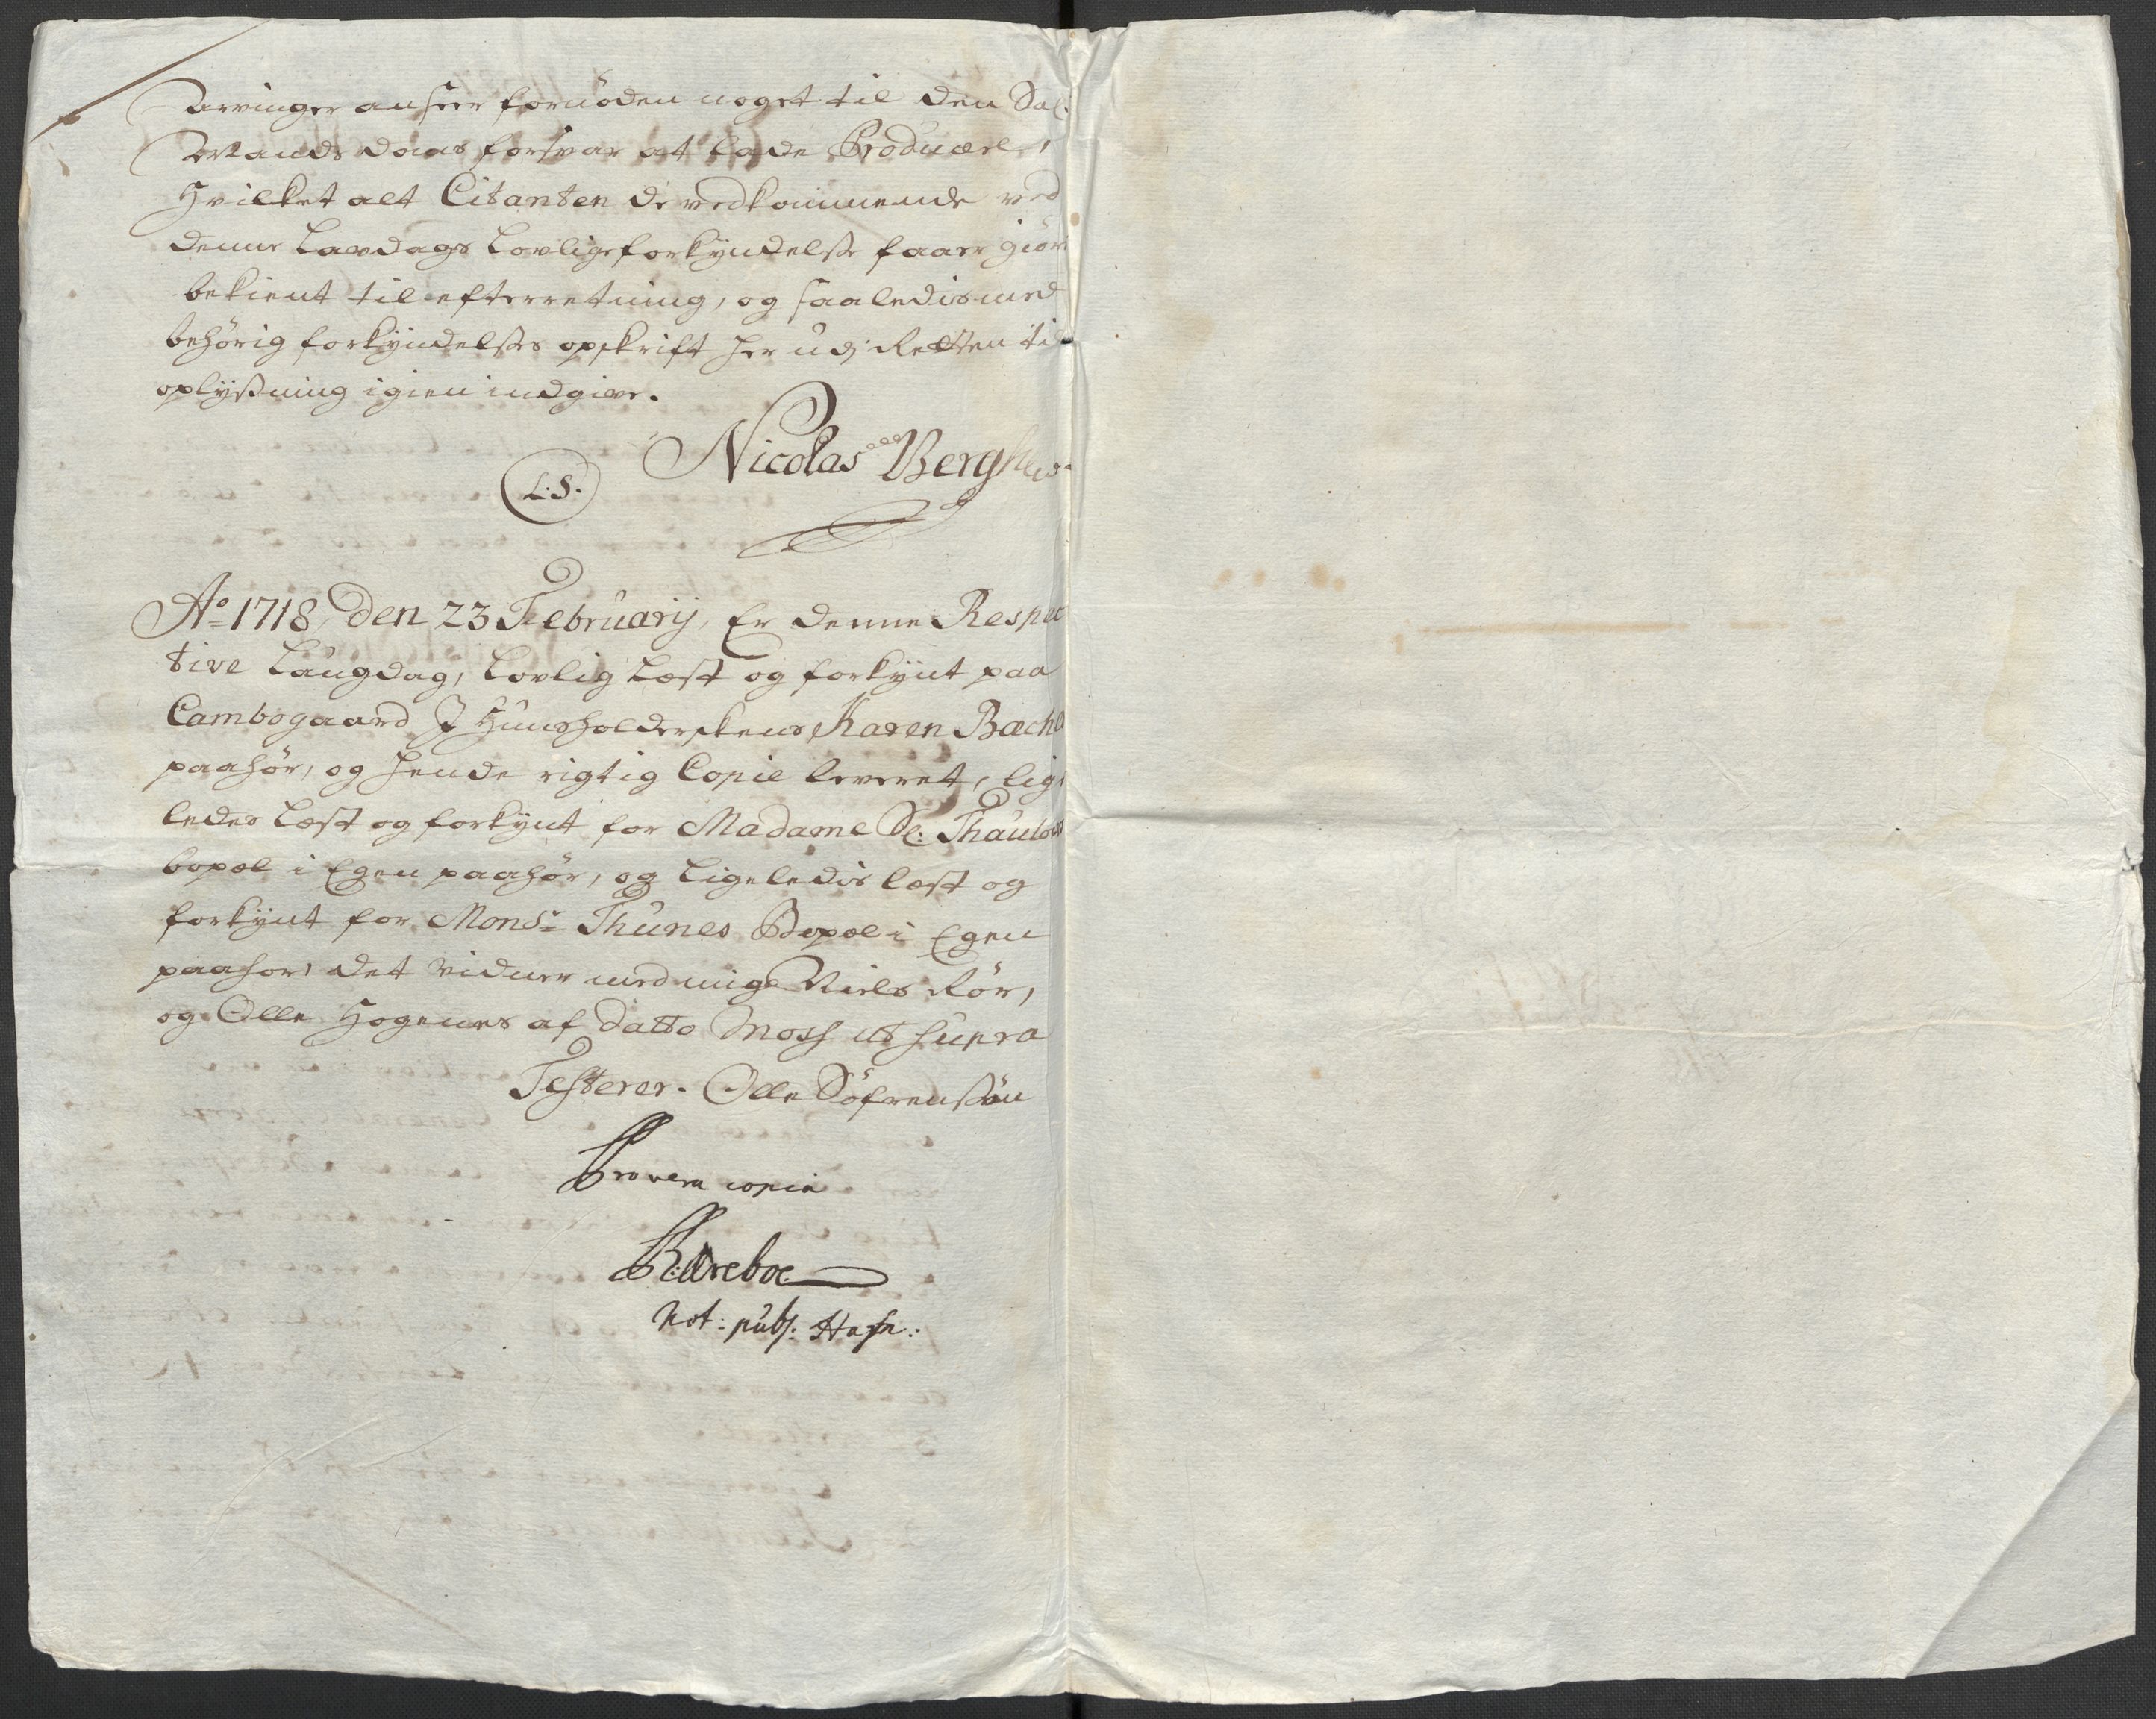 Arvinger anseer fornöden noget til den Sal:
Mands daas forsvar at lade Producere,
Hvilket alt Citanten de vedkommende ved
denne Lavdags Lovlige forkyndelse faaer giör
bekient til efterretning, og saaledis med
behörig forkÿndelses opskrift her udj Retten til
oplÿsning igien indgive.
Nicolas Berghus.
L:S.
Ao 1718, den 23 Februarij, Er denne Respec
tive Laugdag, Lovlig Læst og forkÿnt paa
Cambogaard J Huusholderskens Karen Bæchs
paahör, og hende rigtig Copie leveret, lige
ledes Læst og forkÿnt for Madame Sl: Thaulows
bopæl i Egen paahör, og Ligeledis læst og
forkÿnt for Monsr Thunes Bopæl i Egen
paahör, det vidner med mig Niels Rör,
og Olle Hogenes af datto Moss ut supra
Testerer. Olle Söfrensön
Pro vera copia
B: Areboe
Not: publ: Hafn: